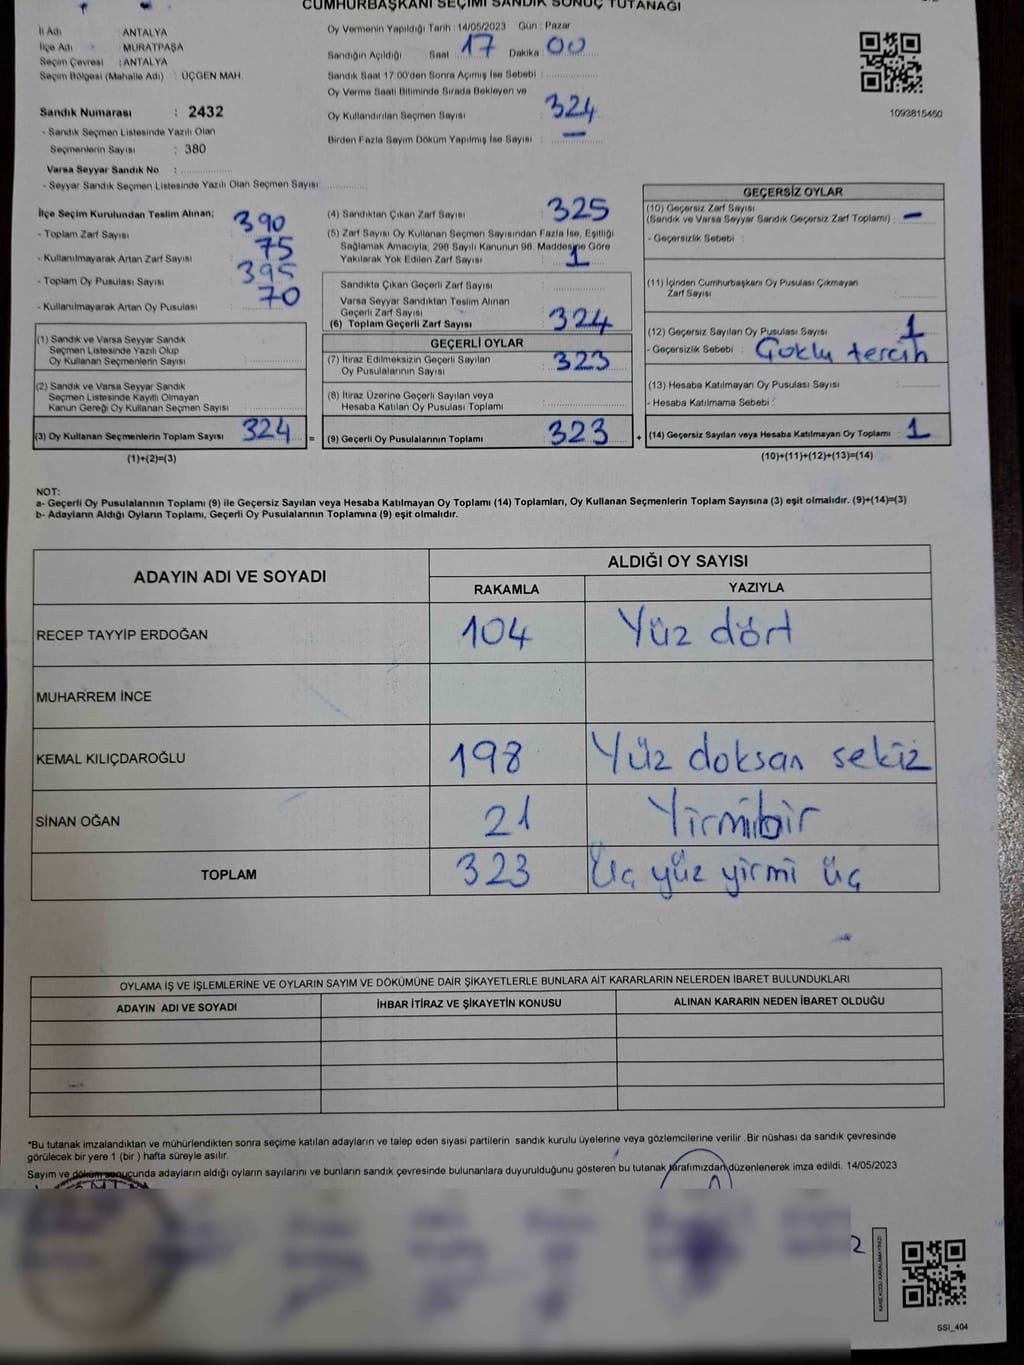 CUMHURBAŞKANI SEÇİMİ SANDIK SONUÇ TUTANAĞI
İl Adı : ANTALYA
İlçe Adı : MURATPAŞA
Seçim Çevresi : ANTALYA
Seçim Bölgesi (Mahalle Adı) : ÜÇGEN MAH.
Sandık Numarası : 2432
- Sandık Seçmen Listesinde Yazılı Olan
Seçmenlerin Sayısı : 380
Varsa Seyyar Sandık No :
- Seyyar Sandık Seçmen Listesinde Yazılı Olan Seçmen Sayısı
Oy Vermenin Yapıldığı Tarih : 14/05/2023 Gün : Pazar
Sandığın Açıldığı Saat 17 Dakika 00
Sandık Saat 17:00'den Sonra Açımış İse Sebebi :
Oy Verme Saati Bitiminde Sırada Bekleyen ve
Oy Kullandırılan Seçmen Sayısı 324
Birden Fazla Sayım Döküm Yapılmış İse Sayısı : —
1093815450
İlçe Seçim Kurulundan Teslim Alınan;
- Toplam Zarf Sayısı 390
- Kullanılmayarak Artan Zarf Sayısı 75
- Toplam Oy Pusulası Sayısı 395
- Kullanılmayarak Artan Oy Pusulası 70
(1) Sandık ve Varsa Seyyar Sandık
Seçmen Listesinde Yazılı Olup
Oy Kullanan Seçmenlerin Sayısı
(2) Sandık ve Varsa Seyyar Sandık
Seçmen Listesinde Kayıtlı Olmayan
Kanun Gereği Oy Kullanan Seçmen Sayısı
(3) Oy Kullanan Seçmenlerin Toplam Sayısı 324 =
(1)+(2)=(3)
(4) Sandıktan Çıkan Zarf Sayısı 325
(5) Zarf Sayısı Oy Kullanan Seçmen Sayısından Fazla İse, Eşitliği
Sağlamak Amacıyla; 298 Sayılı Kanunun 98. Maddesine Göre
Yakılarak Yok Edilen Zarf Sayısı : 1
Sandıkta Çıkan Geçerli Zarf Sayısı
Varsa Seyyar Sandıktan Teslim Alınan
Geçerli Zarf Sayısı
(6) Toplam Geçerli Zarf Sayısı 324
GEÇERLİ OYLAR
(7) İtiraz Edilmeksizin Geçerli Sayılan
Oy Pusulalarının Sayısı 323
(8) İtiraz Üzerine Geçerli Sayılan veya
Hesaba Katılan Oy Pusulası Toplamı
(9) Geçerli Oy Pusulalarının Toplamı 323 +
GEÇERSİZ OYLAR
(10) Geçersiz Zarf Sayısı
(Sandık ve Varsa Seyyar Sandık Geçersiz Zarf Toplamı) : —
- Geçersizlik Sebebi :
(11) İçinden Cumhurbaşkanı Oy Pusulası Çıkmayan
Zarf Sayısı
(12) Geçersiz Sayılan Oy Pusulası Sayısı 1
- Geçersizlik Sebebi : Çoklu tercih
(13) Hesaba Katılmayan Oy Pusulası Sayısı
- Hesaba Katılmama Sebebi :
(14) Geçersiz Sayılan veya Hesaba Katılmayan Oy Toplamı 1
(10)+(11)+(12)+(13)=(14)
NOT:
a- Geçerli Oy Pusulalarının Toplamı (9) ile Geçersiz Sayılan veya Hesaba Katılmayan Oy Toplamı (14) Toplamları, Oy Kullanan Seçmenlerin Toplam Sayısına (3) eşit olmalıdır. (9)+(14)=(3)
b- Adayların Aldığı Oyların Toplamı, Geçerli Oy Pusulalarının Toplamına (9) eşit olmalıdır.
ADAYIN ADI VE SOYADI
ALDIĞI OY SAYISI
RAKAMLA YAZIYLA
RECEP TAYYİP ERDOĞAN 104 Yüz dört
MUHARREM İNCE
KEMAL KILIÇDAROĞLU 198 Yüz doksan sekiz
SİNAN OĞAN 21 Yirmibir
TOPLAM 323 Üç yüz yirmi üç
OYLAMA İŞ VE İŞLEMLERİNE VE OYLARIN SAYIM VE DÖKÜMÜNE DAİR ŞİKAYETLERLE BUNLARA AİT KARARLARIN NELERDEN İBARET BULUNDUKLARI
ADAYIN ADI VE SOYADI İHBAR İTİRAZ VE ŞİKAYETİN KONUSU ALINAN KARARIN NEDEN İBARET OLDUĞU
*Bu tutanak imzalandıktan ve mühürlendikten sonra seçime katılan adayların ve talep eden siyasi partilerin sandık kurulu üyelerine veya gözlemcilerine verilir .Bir nüshası da sandık çevresinde
görülecek bir yere 1 (bir ) hafta süreyle asılır.
Sayım ve döküm sonucunda adayların aldığı oyların sayılarını ve bunların sandık çevresinde bulunanlara duyurulduğunu gösteren bu tutanak tarafımızdan düzenlenerek imza edildi. 14/05/2023
2
KARE KODU KARALAMAYINIZ!
SSI_404